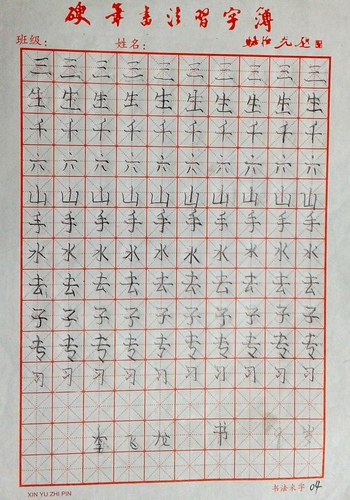 硬筆書法習字簿
班级： 姓名：
三三三三三三三三三三
生生生生生生生生生生
千千千千千千千千千千
六六六六六六六六六六
山山山山山山山山山山
手手手手手手手手手手
水水水水水水水水水水
去去去去去去去去去去
子子子子子子子子子子
专专专专专专专专专专
习习习习习习习习习习
李飞龙 书 岁
XIN YU ZHI PIN 书法米字 04